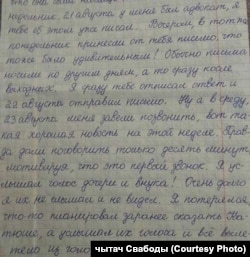 недельник 21 августа у меня был адвокат, я
тебе об этом уже писал. Вечером, в тот же
понедельник принесли от тебя письмо, что
тоже было удивительным! Обычно письма
носили по другим дням, а то сразу после
выходных. Я сразу тебе отписал ответ и
22 августа отправил письмо. Ну а в среду
23 августа меня завели позвонить, вот та-
кая хорошая новость на этой неделе. Прав-
да дали поговорить только десять минут,
мотивируя, что это первый звонок. Я ус-
лышал голос дочери и внука! Очень долго
я их не слышал и не видел. Я потерялся,
что-то планировал заранее сказать Ка-
тюше, а услышал их голоса и всё выле-
тело из
чытач Свабоды (Courtesy Photo)